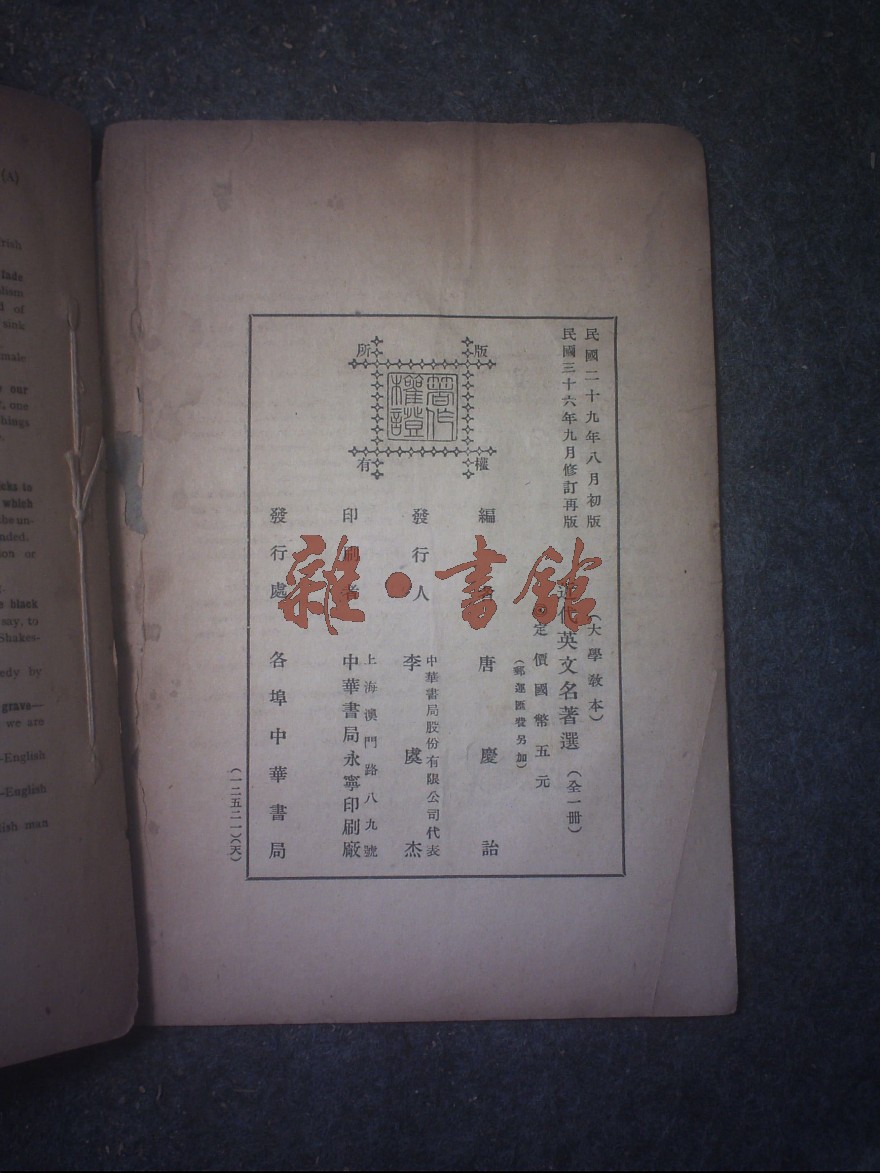 民國二十九年八月初版
民國三十六年九月修訂再版
(大學教本)
近代英文名著選(全一冊)
定價國幣五元
(郵運匯費另加)
編者 唐慶詒
發行人 中華書局股份有限公司代表
李虞杰
印刷者 上海澳門路八九號
中華書局永寧印刷廠
發行處 各埠中華書局
(一二五二一)(天)
版權所有
著作權證
雜·書館
(A)
lade
of
sink
male
our
one
which
nded.
son or
black
say, to
Shakes-
edy by
grave—
we are
-English
-English
ish man